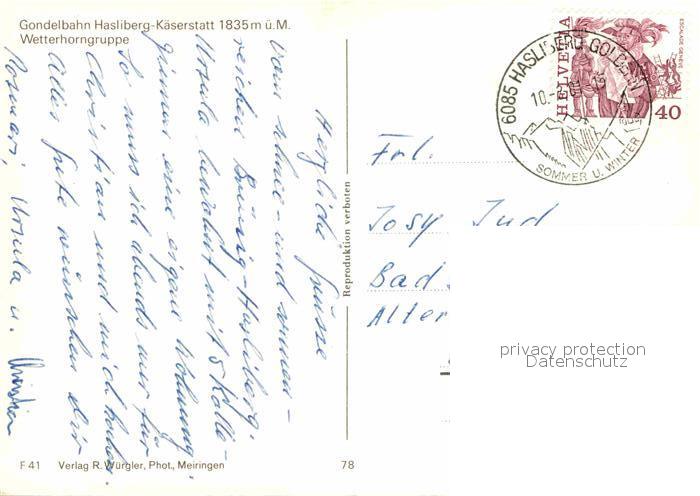 Gondelbahn Hasliberg-Käserstatt 1835 m ü.M.
Wetterhorngruppe
Herzliche Grüsse
vom schnee- und sonnen-
reichen Brünig-Hasliberg.
Ursula bewohnt mit 5 Kolle-
ginnen eine eigene Wohnung.
So muss ich abends nur für
Christian und mich kochen.
Alles Gute wünschen Dir
Rosmarie, Ursula u. Christian
Reproduktion verboten
F 41 Verlag R. Würgler, Phot., Meiringen
78
HELVETIA
ESCALADE GENÈVE
40
6085 HASLIBERG GOLDERN
10.
SOMMER U. WINTER
Frl.
Josy Jud
Bad
Alter
privacy protection
Datenschutz